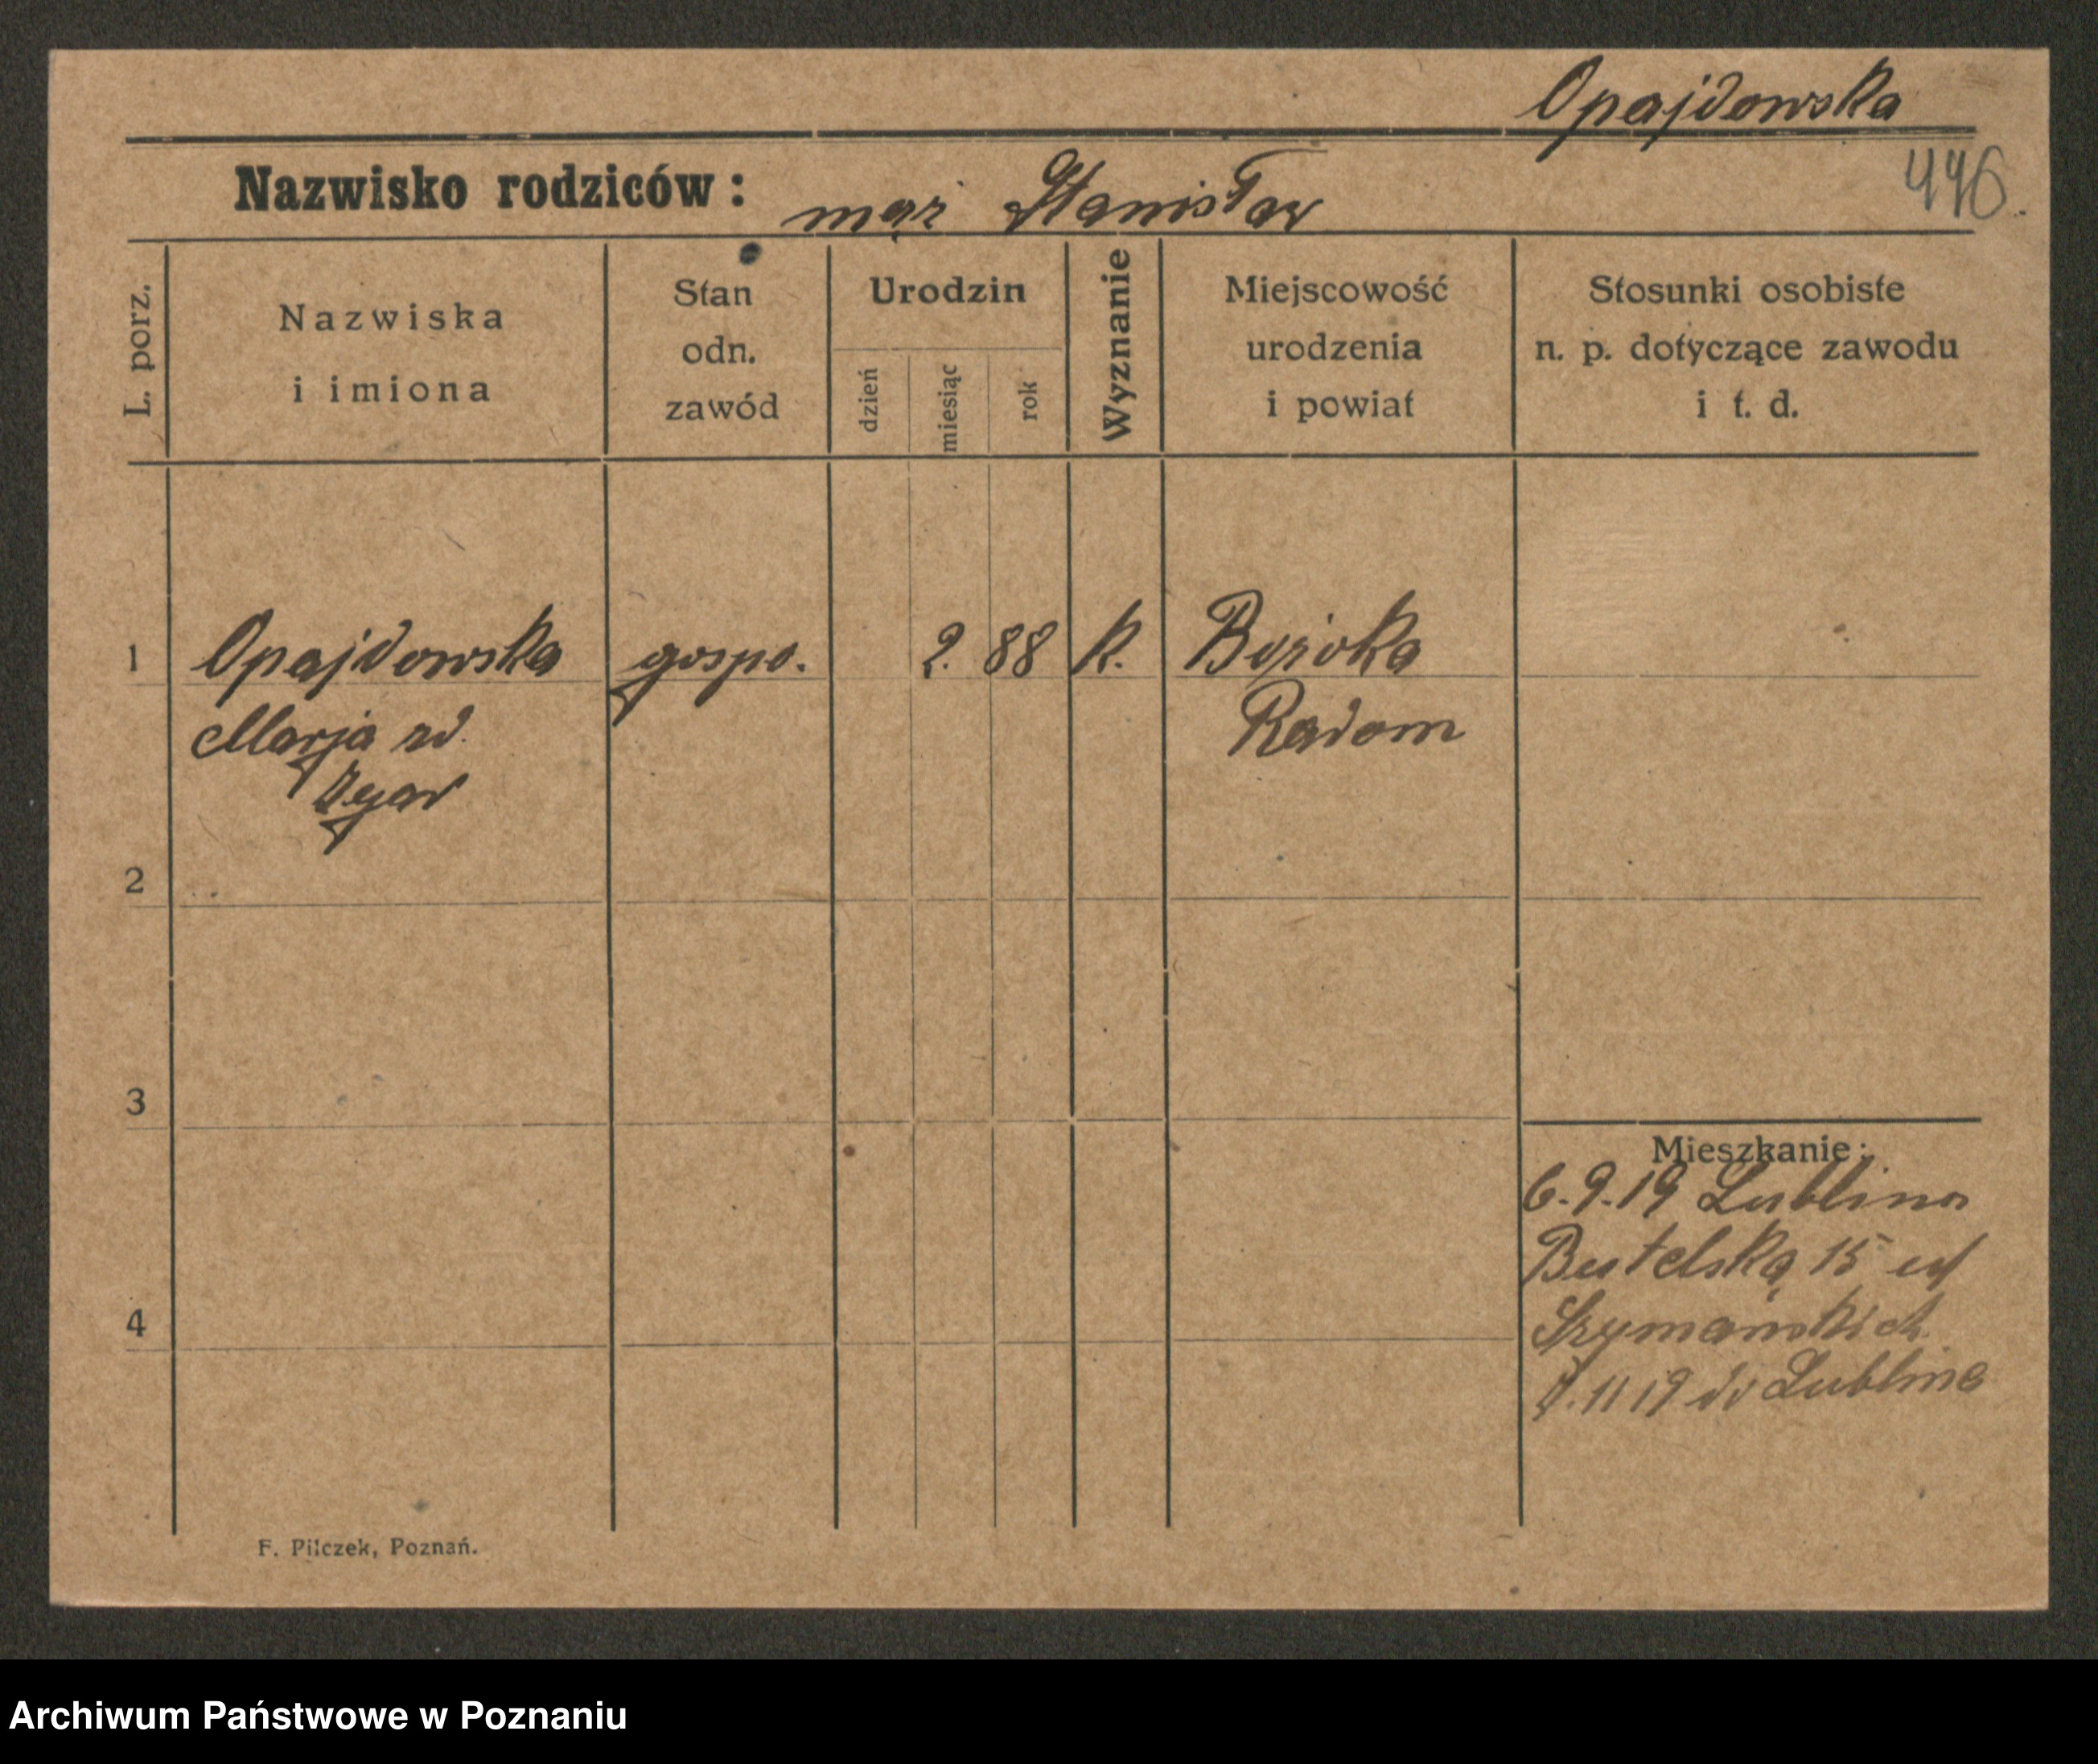 Opajdowska
446.
Nazwisko rodziców: mąż Stanisław
L. porz.
Nazwiska
i imiona
Stan
odn.
zawód
Urodzin
dzień
miesiąc
rok
Wyznanie
Miejscowość
urodzenia
i powiat
Stosunki osobiste
n. p. dotyczące zawodu
i t. d.
1 Opajdowska gospo. 2. 88 K.
Marja
Radom
2
3
4
Mieszkanie:
6.9.19 Lublina
Butelska 15
Szymańskich
11 19 do Lublina
F. Pilczek, Poznań.
Archiwum Państwowe w Poznaniu